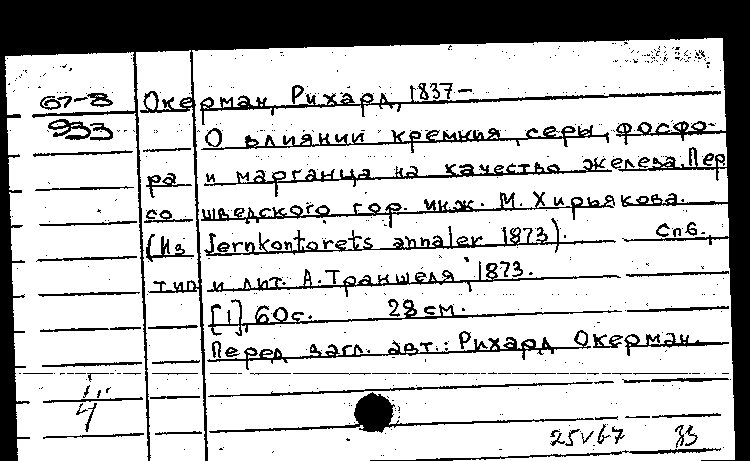 67-8 Окерман, Рихард, 1837-
933 О влиянии кремния, серы, фосфо-
ра и марганца на качество железа. Пер
со шведского гор. инж. М. Хирьякова.
(Из Jernkontorets annaler 1873). Спб.,
тип и лит. А. Траншеля, 1873.
[1], 60 с. 28 см.
Перед загл. авт.: Рихард Окерман.
25 V 67 33